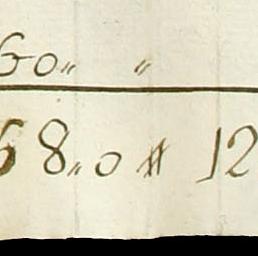 60〃 〃
68〃0 # 12